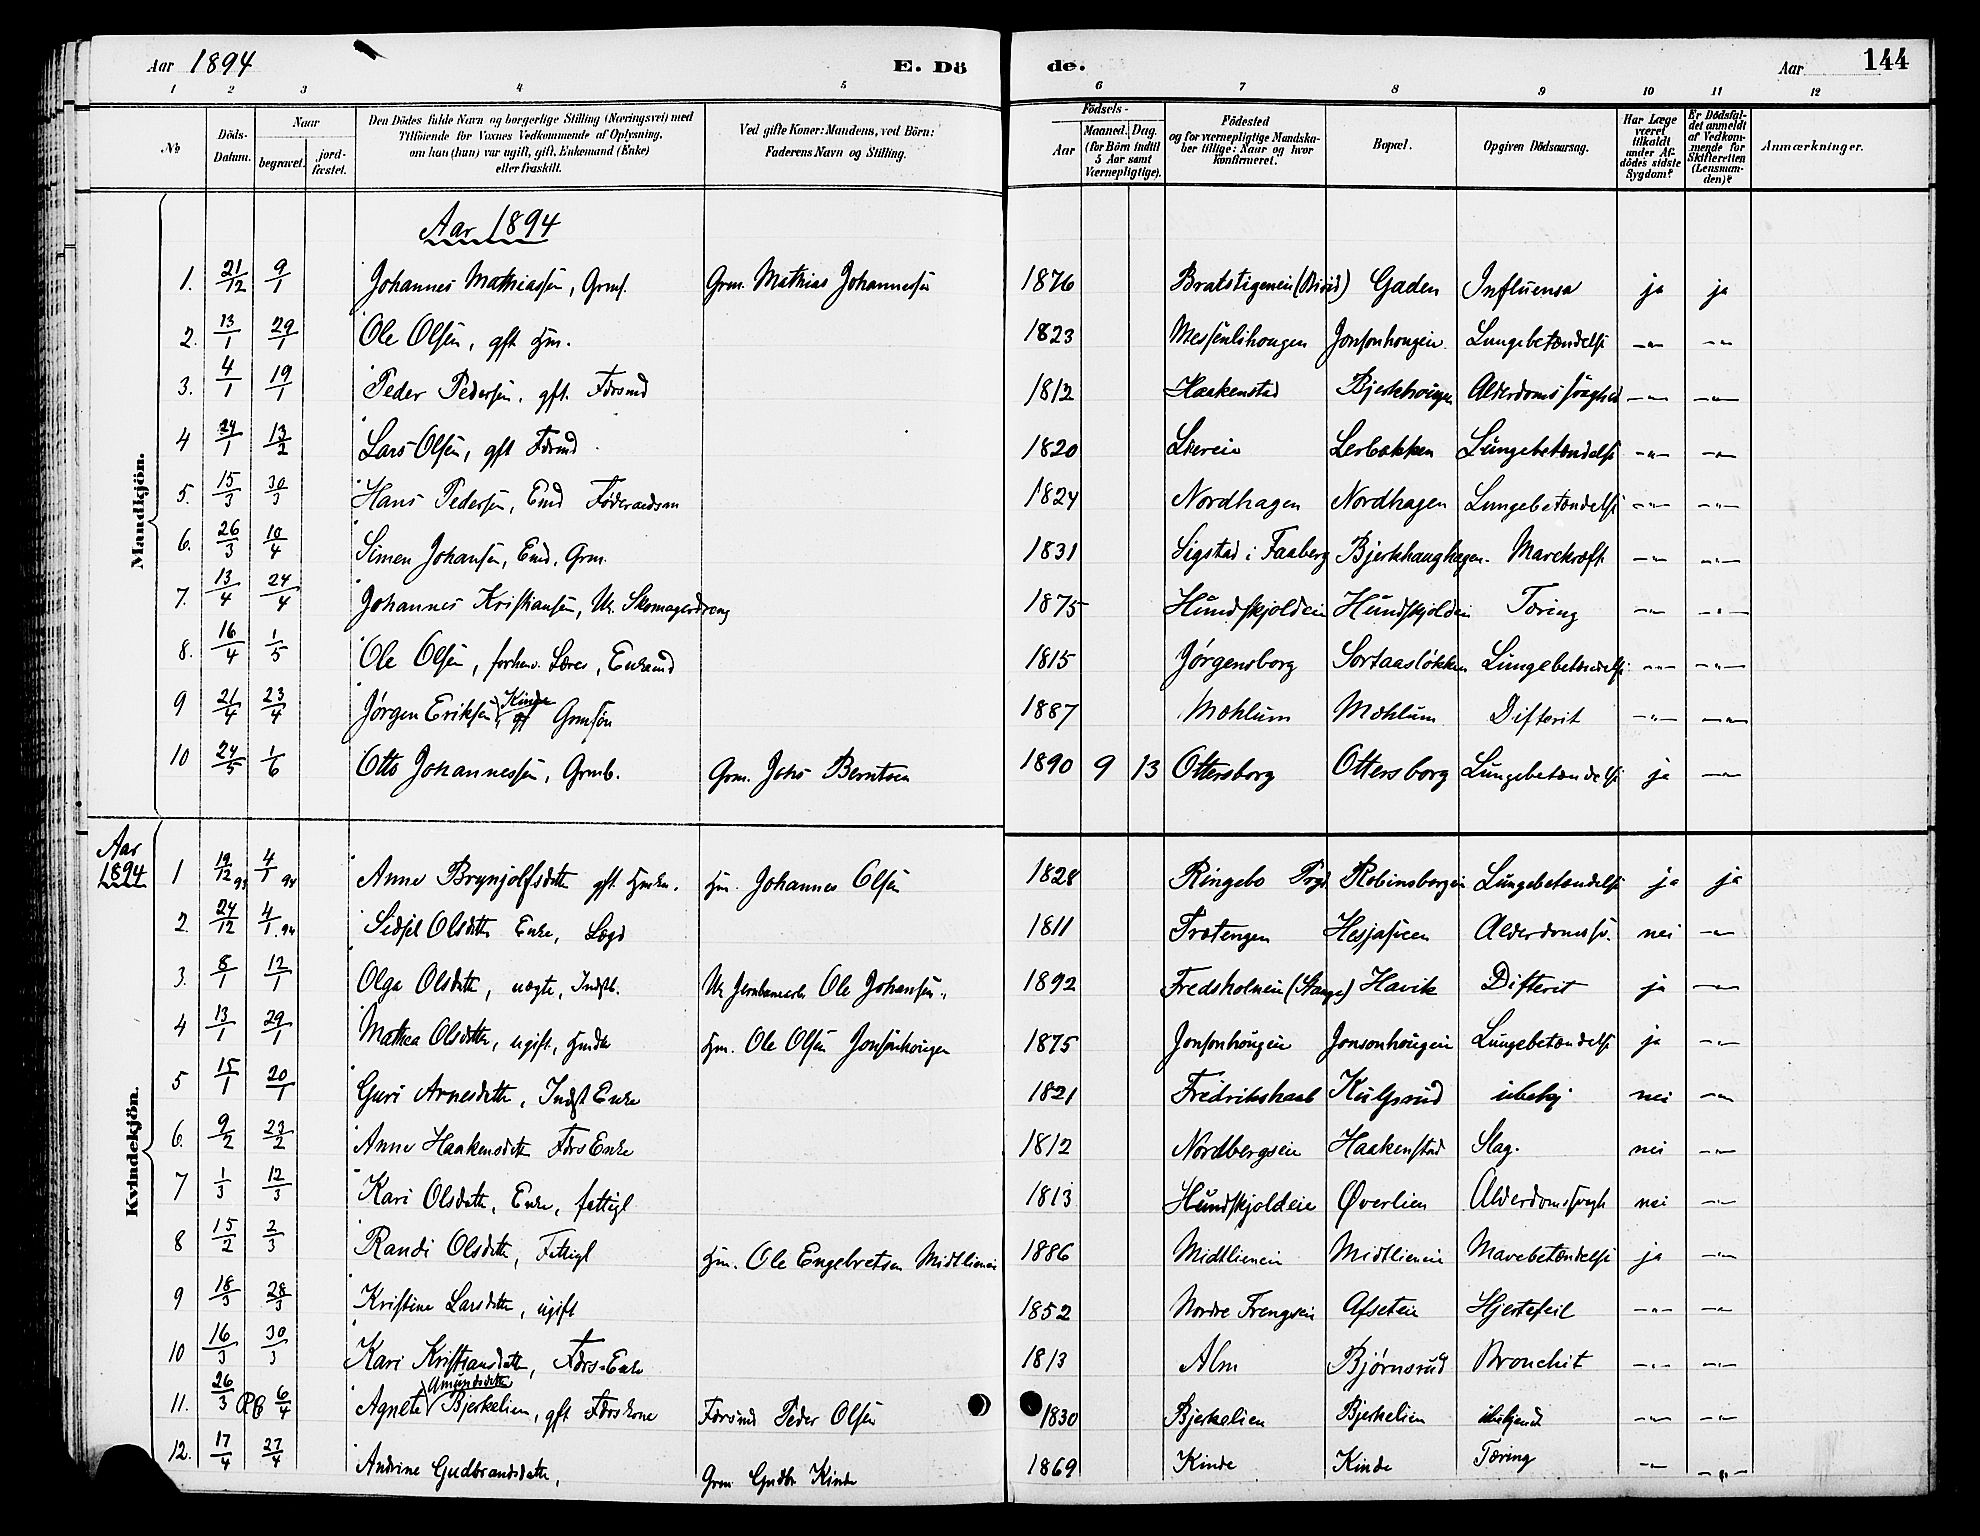 Aar 1894 E. Dö de. Aar 144
1 2 3 4 5 6 7 8 9 10 11 12
No Döds-Datum. Naar begravet. jord-fæstet. Den Dödes fulde Navn og borgerlige Stilling (Næringsvei) med Tilföiende for Voxnes Vedkommende af Oplysning, om han (hun) var ugift, gift, Enkemand (Enke) eller fraskilt. Ved gifte Koner: Mandens, ved Börn: Faderens Navn og Stilling. Födsels- Aar Maaned. Dag. (for Börn indtil 5 Aar samt Værnepligtige). Födested og for værnepligtige Mandskaber tillige: Naar og hvor konfirmeret. Bopæl. Opgiven Dödsaarsag. Har Læge været tilkaldt under Afdödes sidste Sygdom? Er Dödsfaldet anmeldt af Vedkommende for Skifteretten (Lensmanden)? Anmærkninger.
Mandkjön.
Aar 1894
1. 21/12 9/1 Johannes Mathiassen, Grmf. Grm. Mathias Johannesen 1876 Bratstigeneie (Biri) Gaden Influensa ja ja
2. 13/1 29/1 Ole Olsen, gft Hm. 1823 Messenlihougen Jonsonhougeie Lungebetændelse -"- -"-
3. 4/1 19/1 Peder Pedersen, gft. Fdrsmd 1812 Haakenstad Bjerkhougen Alderdomssvaghed -"- -"-
4 24/1 13/2 Lars Olsen, gft Fdrmd 1820 Lereie Lerbakken Lungebetændelse -"- -"-
5. 15/3 30/3 Hans Pedersen, Emd Föderaadsm 1824 Nordhagen Nordhagen Lungebetændelse -"- -"-
6. 26/3 10/4 Simen Johansen, Emd, Grm. 1831 Sigstad i Faaberg Bjerkhaughagen Mavekræft -"- -"-
7. 13/4 24/4 Johannes Kristiansen, Uk. Skomagerdreng 1875 Hundskjoldeie Hundskjoldeie Tæring -"- -"-
8. 16/4 1/5 Ole Olsen, forhenv. Lærer, Enkemd 1815 Jørgensborg Sortaasløkken Lungebetændelse -"- -"-
9 21/4 23/4 Jørgen Eriksen Kinde Grmsön 1887 Mæhlum Mæhlum Difterit -"- -"-
10 24/5 1/6 Otto Johannessen, Grmb. Grm. Johs Berntsen 1890 9 13 Ottersborg Ottersborg Lungebetændelse ja -"-
Kvindekjön.
Aar 1894
1 19/12 93 4/1 94 Anne Brynjolfsdatter gft Hmkn. Hm. Johannes Olsen 1828 Ringebo Prgd Robinsborgeie Lungebetændelse ja ja
2. 24/12 4/1 94 Sidsel Olsdatter Enke, Lægd 1811 Trætengen Alderdomssv. nei -"-
3. 8/1 12/1 Olga Olsdatter, uægte, Indstb. Uk Jernbanearb. Ole Johansen 1892 Fredsholmeie (Stange) Havik Difterit ja -"-
4 13/1 29/1 Mathea Olsdatter, ugift, Hmdtr Hm. Ole Olsen Jonsonhougen 1875 Jonsonhougeie Jonsonhougeie Lungebetændelse ja -"-
5 15/1 20/1 Guri Arnesdatter, Indst Enke 1821 Fredrikshaab Kulsrud ubekj nei -"-
6. 9/2 23/2 Anne Haakensdatter Fdrs Enke 1812 Nordbergseie Haakenstad Slag. nei -"-
7 1/3 12/3 Kari Olsdatter, Enke, fattigl 1813 Hundskjoldeie Øverlien Alderdomssvagh nei -"-
8 15/2 2/3 Randi Olsdatter, Fattigl Hm. Ole Engebretsen Midtlieneie 1886 Midtlieneie Midtlieneie Mavebetændelse ja -"-
9 18/3 28/3 Kristine Larsdatter, ugift 1852 Nordre Frengseie Afseteie Hjertefeil -"- -"-
10 16/3 30/3 Kari Kristiansdatter, Fdrs-Enke 1813 Alm Bjørnsrud Bronchit -"- -"-
11. 26/3 6/4 Agnete Amundsdatter Bjerkelien, gft Fdrskone Fdrsmd Peder Olsen 1830 Bjerkelien Bjerkelien ubekjendt -"- -"-
12. 17/4 27/4 Andrine Gudbrandsdatter, Grm Gudbr Kinde 1869 Kinde Kinde Tæring -"- -"-